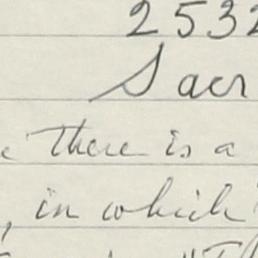 2532
Sacr
there is a
, in which